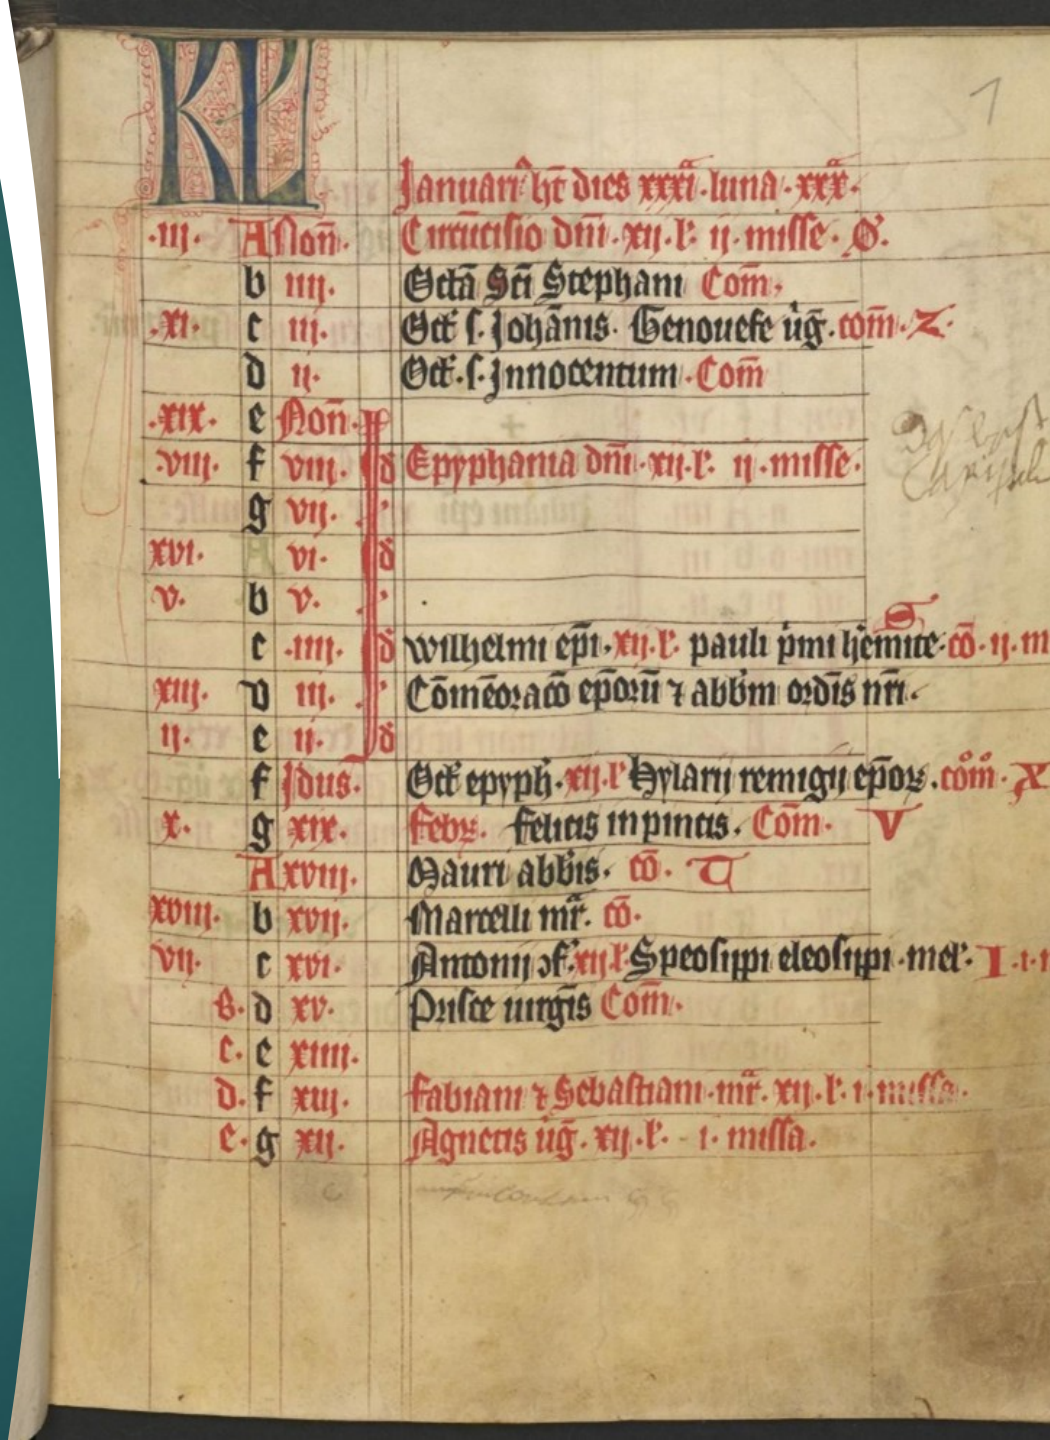 KL
1
Januari' ht dies xxxi · luna · xxx ·
· iii · A Non̄ · Circūcisio dn̄i · xii · l' · ii · misse · S ·
b iiii · Octā Sc̄i Stephani Com̄ ·
· xi · c iii · Oct' s · Johānis · Genouefe uḡ · com̄ · Z ·
d ii · Oct' · s · Innocentum · Com̄
· xix · e Non̄ ·
· viii · f viii · Id Epyphania dn̄i · xii · l' · ii · misse ·
g vii ·
xvi · A vi · Id
v · b v ·
c · iiii · Id wilhelmi ep̄i · xii · l' · pauli p'mi h'emite · cō · ii · m
xiii · d iii · Cōmēoracō ep̄orū ⁊ abb'm ordīs nr̄i ·
ii · e ii · Id
f Idus · Oct' epyph' · xii · l' Hylarii remigii ep̄oꝝ · com̄ · X
x · g xix · Febꝝ · Felicis in pincis · Com̄ · V
A xviii · Mauri abb'is · cō · T
xviii · b xvii · Marcelli mr̄ · cō ·
vii · c xvi · Antonii ɔf · xii · l' · Speosippi eleosippi · mel' · I · i · m
B · d xv · Prisce uirgīs Com̄ ·
c · e xiiii ·
d · f xiii · Fabiani ⁊ Sebastiani · mr̄ · xii · l' · i · missa ·
e · g xii · Agnetis uḡ · xii · l' · i · missa ·